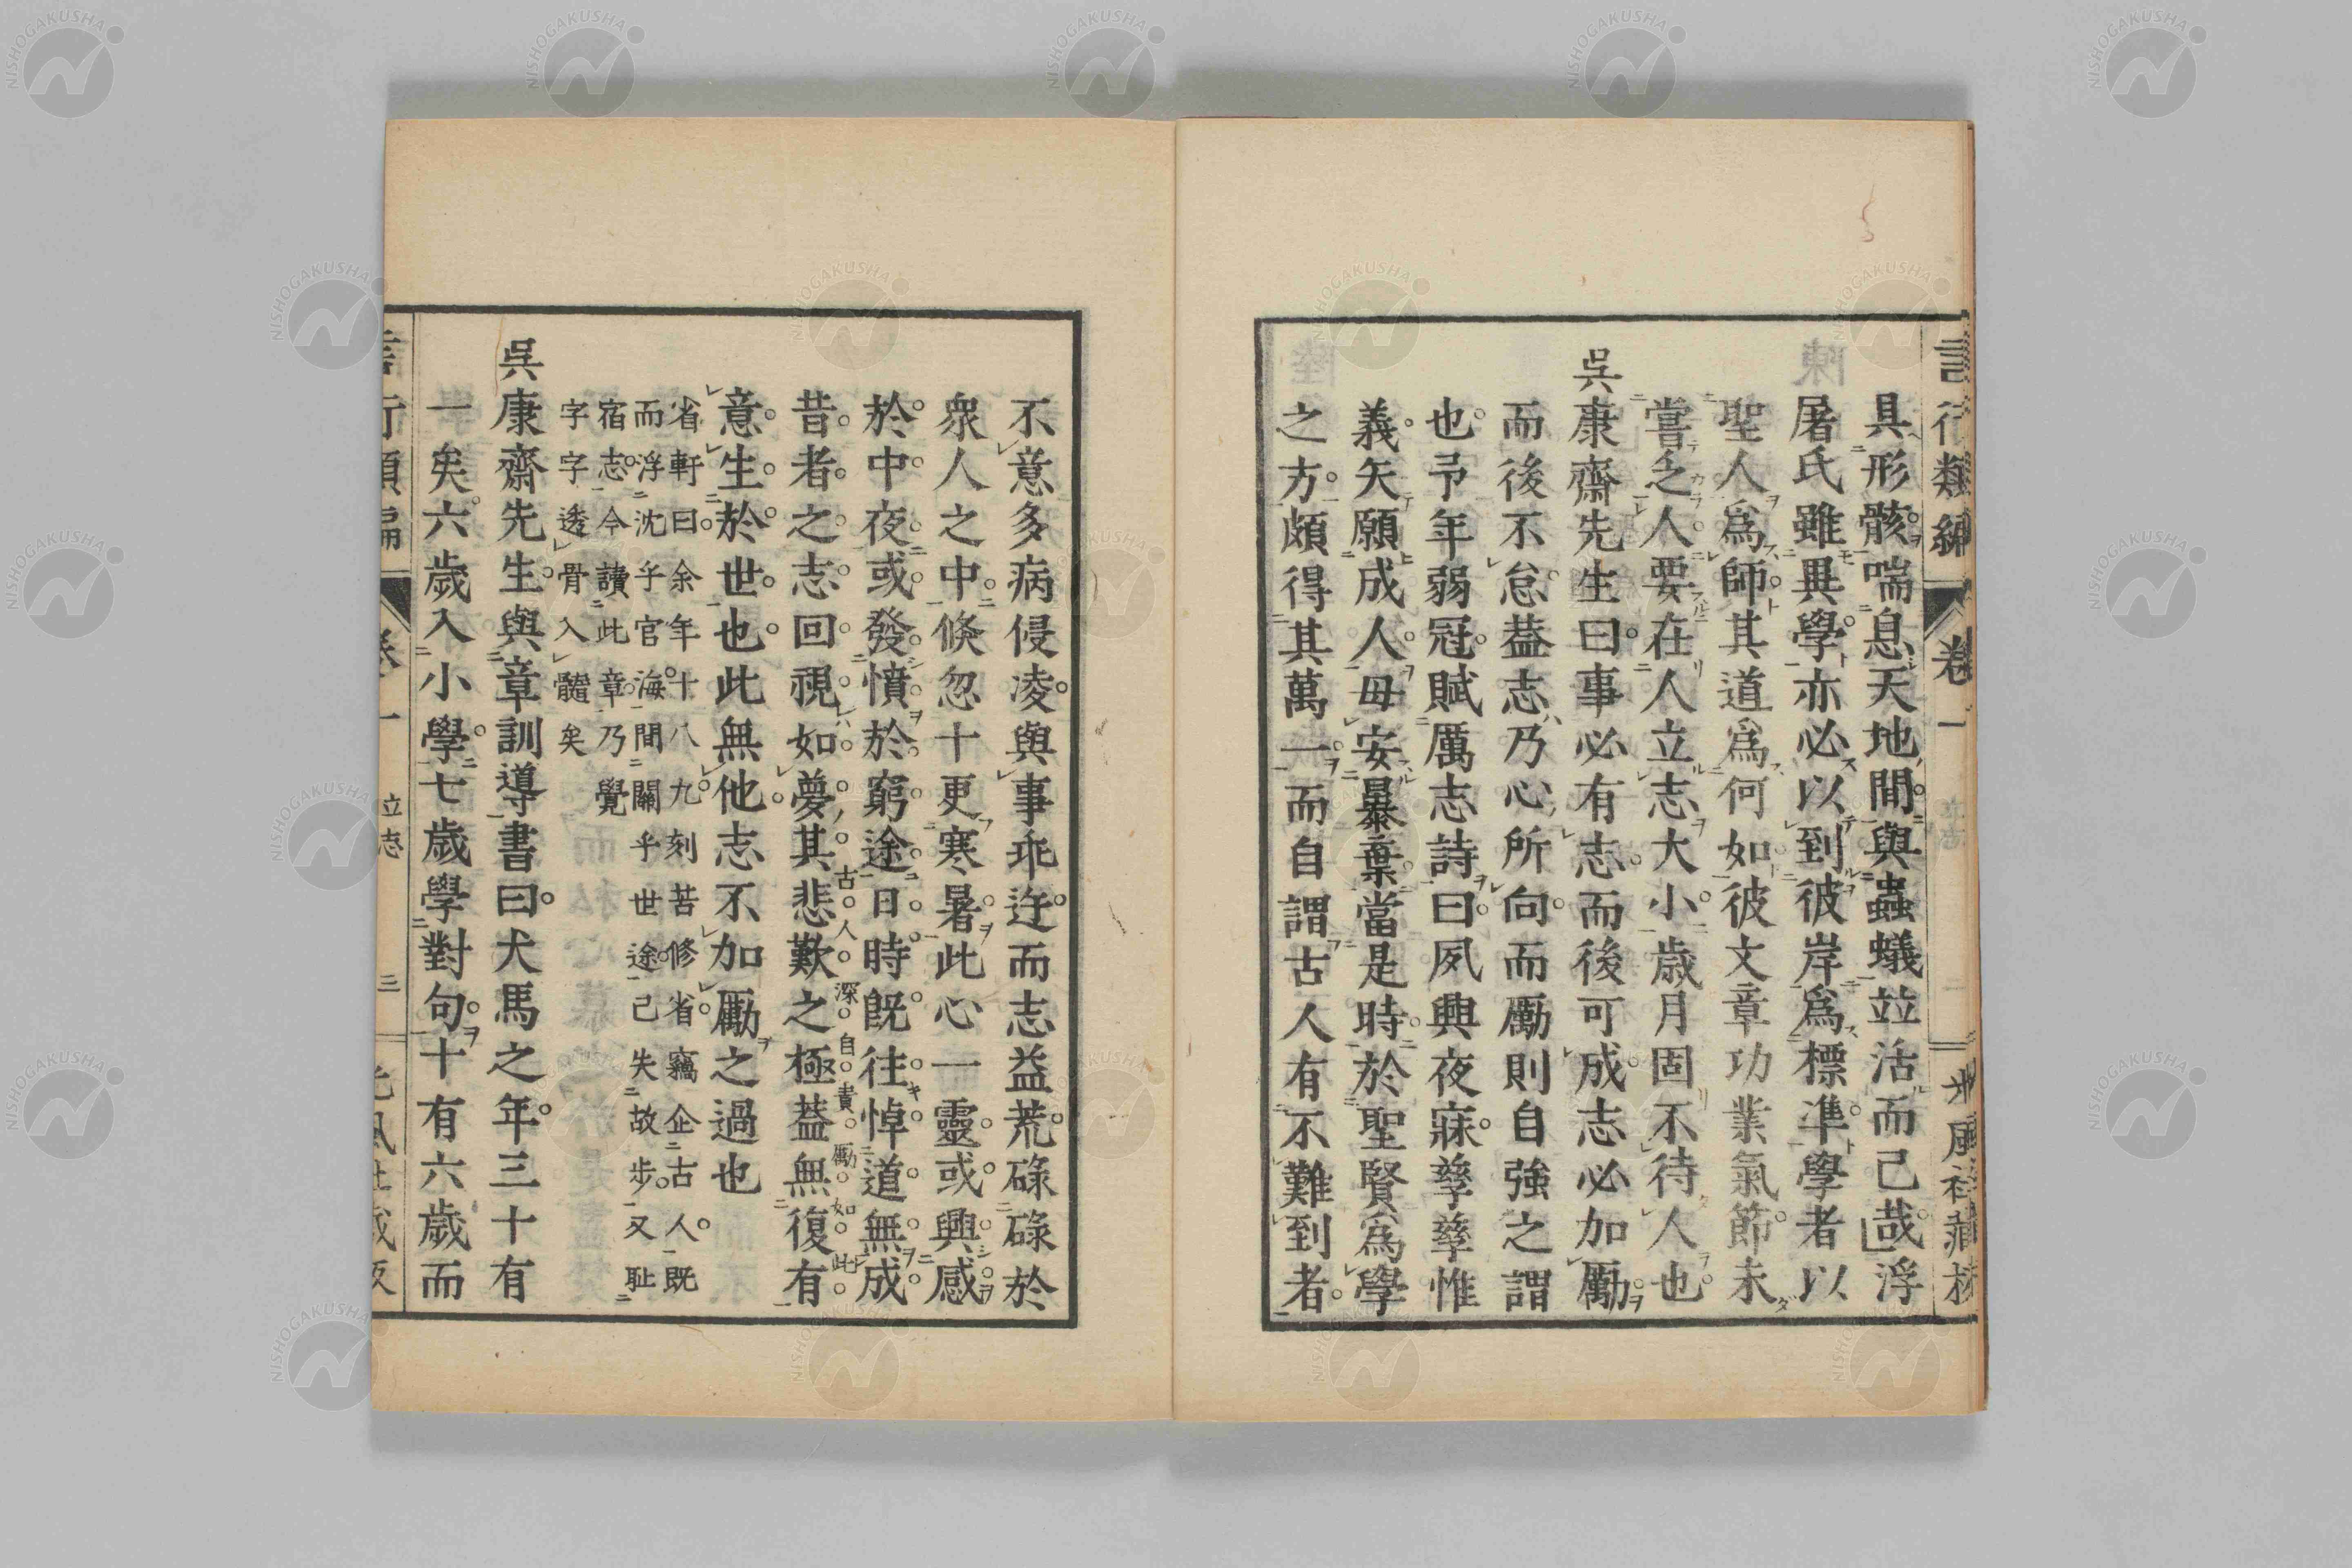 言行類編 卷一 光風社藏板
具形骸喘息天地間與蟲蟻竝活而已哉浮
屠氏雖異學亦必以到彼岸爲標準學者以
聖人爲師其道爲何如彼文章功業氣節未
嘗乏人要在人立志大小歲月固不待人也
吳康齋先生曰事必有志而後可成志必加勵
而後不怠葢志乃心所向而勵則自強之謂
也予年弱冠賦厲志詩曰夙興夜寐孳孳惟
義矢願成人毋安暴棄當是時於聖賢爲學
之方頗得其萬一而自謂古人有不難到者
不意多病侵凌與事乖迕而志益荒碌碌於
衆人之中倐忽十更寒暑此心一靈或興感
於中夜或發憤於窮途日時既往悼道無成
昔者之志回視如夢其悲歎之極葢無復有
古人深自責勵如此
意生於世也此無他志不加勵之過也
省軒曰余年十八九刻苦修省竊企古人既
而浮沈乎官海間關乎世途已失故步又耻
宿志今讀此章乃覺
字字透骨入髓矣
吳康齋先生與章訓導書曰犬馬之年三十有
一矣六歲入小學七歲學對句十有六歲而
言行類編 卷一 立志 三 光風社藏板
NISHOGAKUSHA